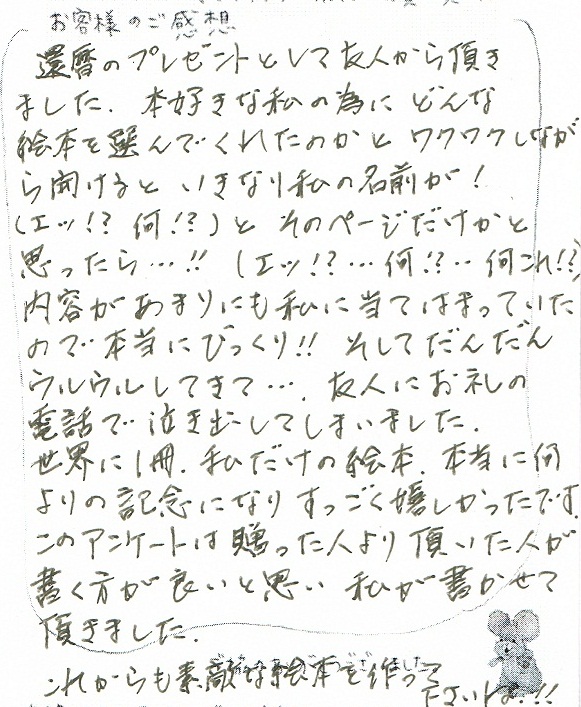 お客様のご感想
還暦のプレゼントとして友人から頂き
ました. 本好きな私の為に どんな
絵本を選んでくれたのかと ワクワクしなが
ら開けると いきなり私の名前が!
(エッ!? 何!?)と そのページだけかと
思ったら…!! (エッ!?…何!?…何これ!?)
内容があまりにも私に当てはまっていた
ので 本当にびっくり!! そしてだんだん
ウルウルしてきて…. 友人にお礼の
電話で 泣き出してしまいました.
世界に1冊. 私だけの絵本. 本当に何
よりの記念になり すっごく嬉しかったです.
このアンケートは 贈った人より 頂いた人が
書く方が良いと思い 私が書かせて
頂きました.
これからも素敵な絵本を作って
下さいね!!